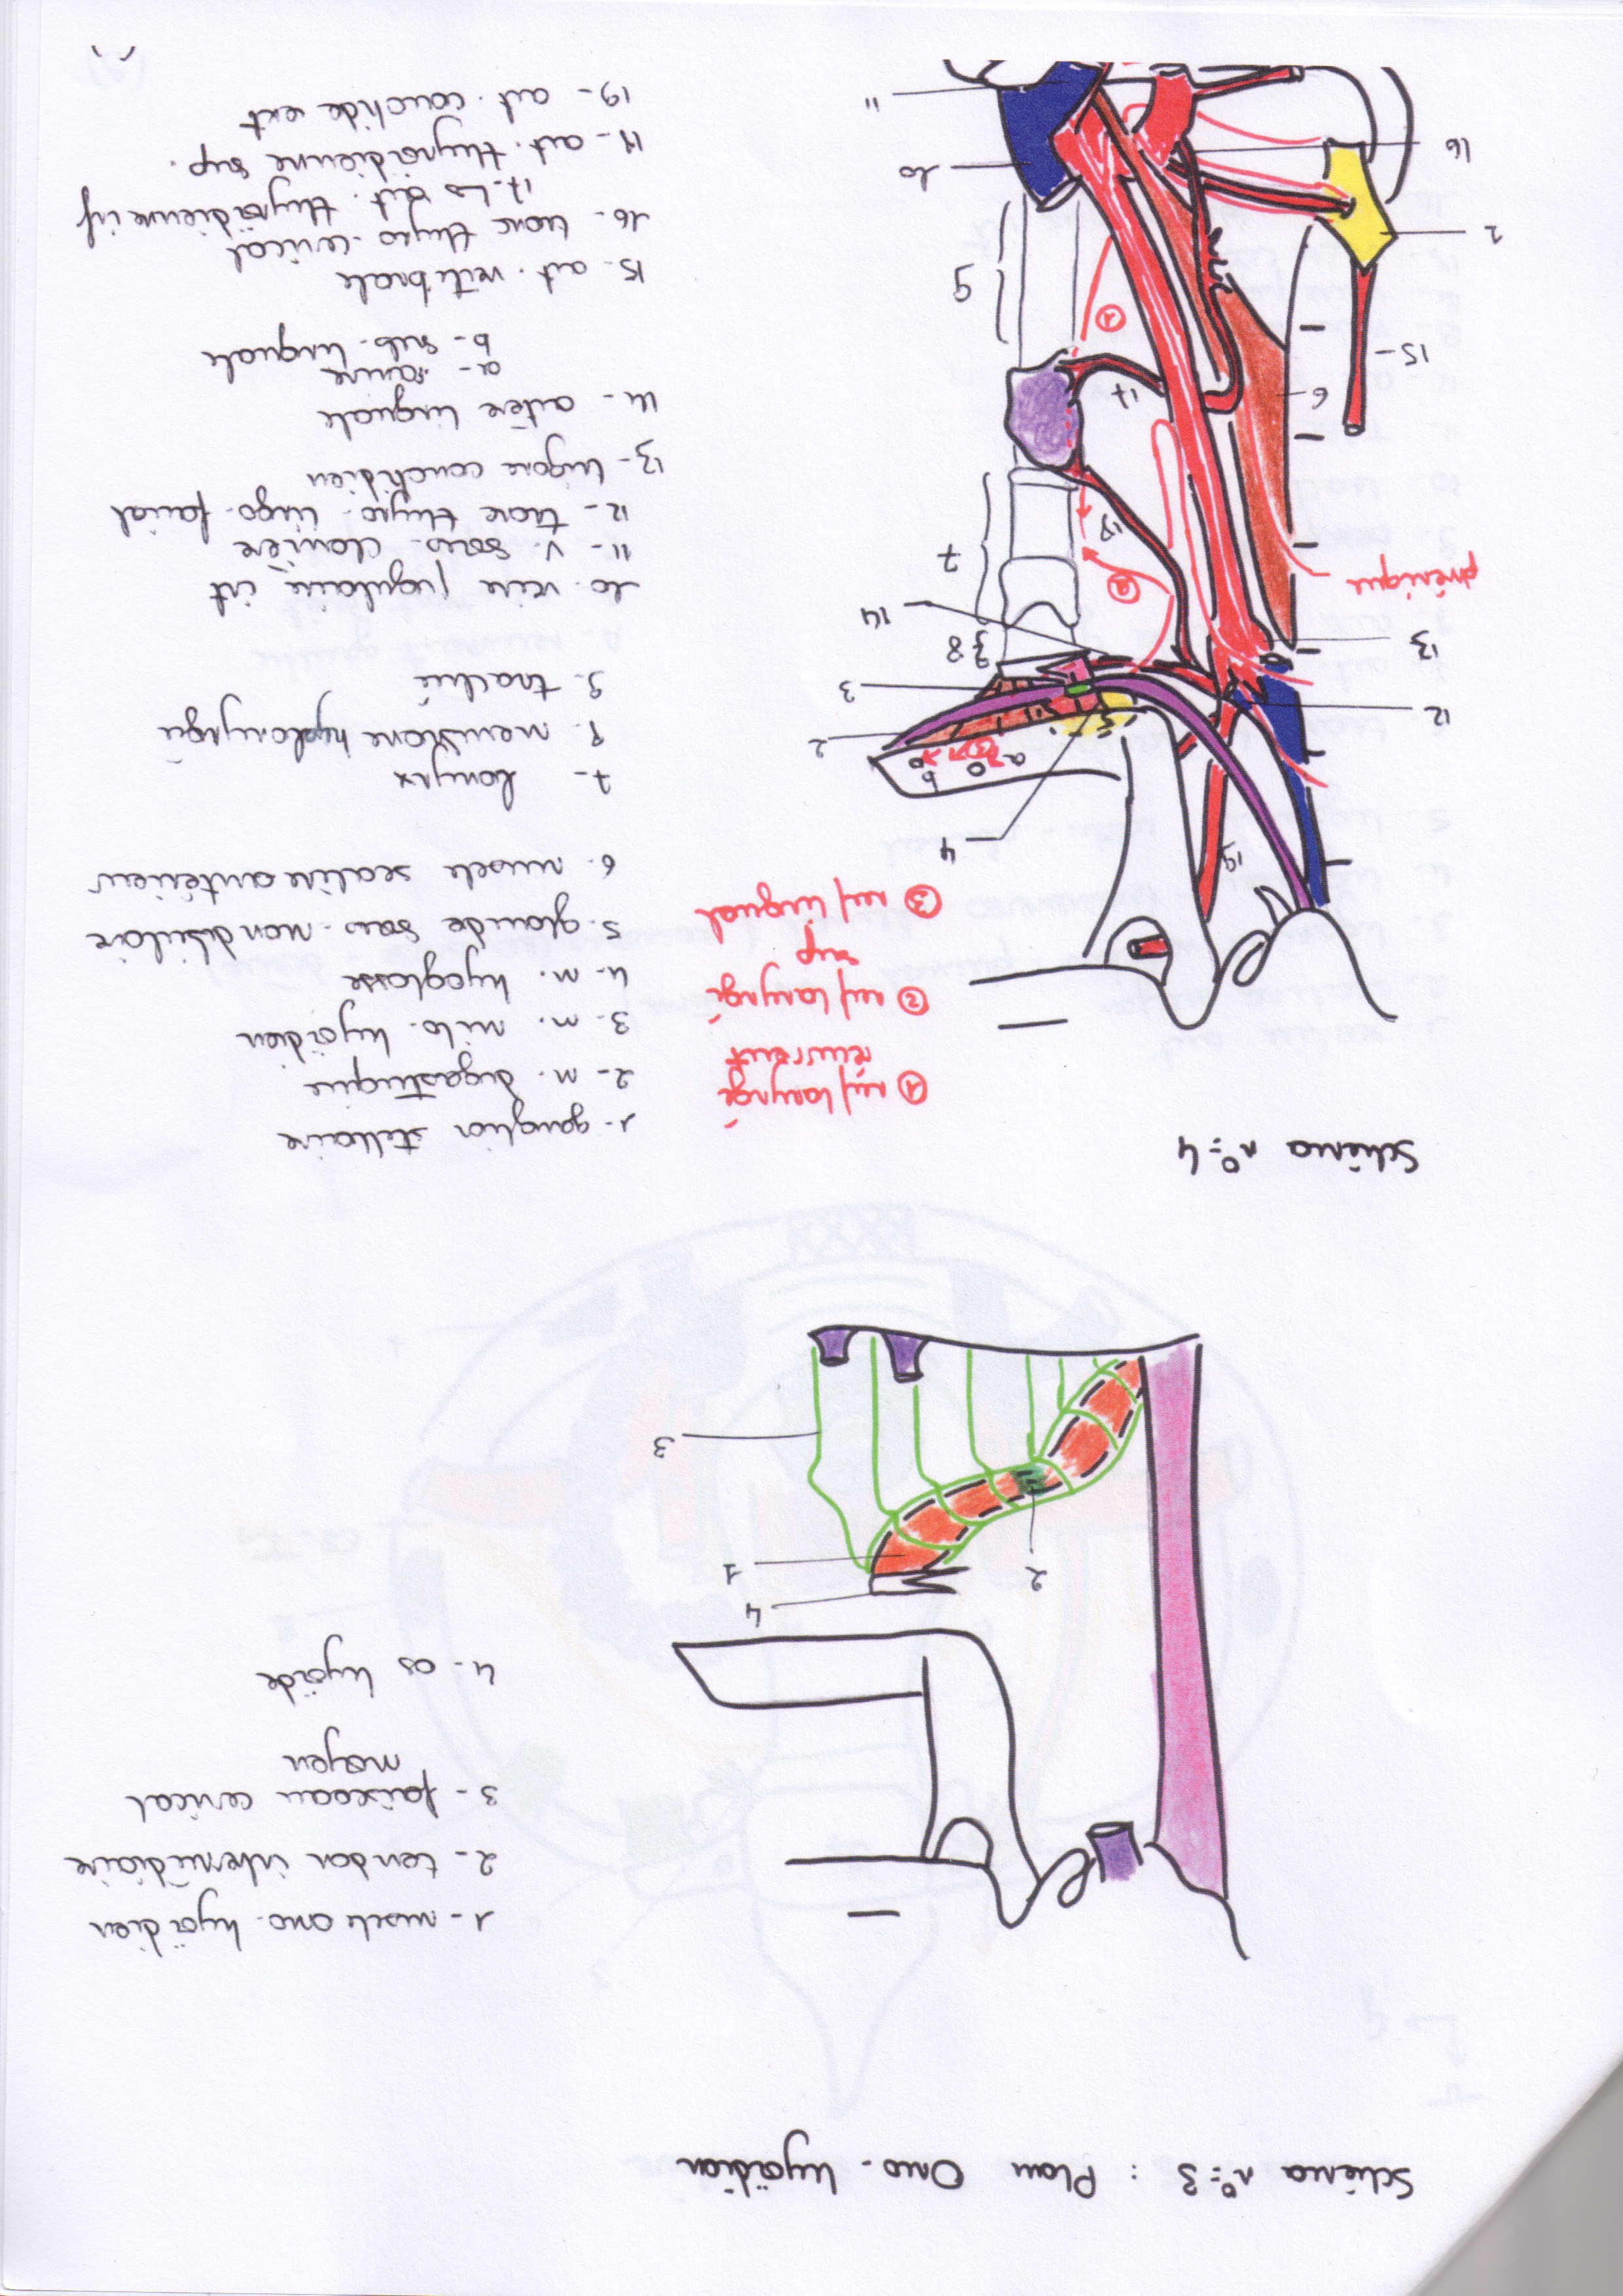 Schéma n°=3 : Plan Omo-hyoïdien
1- muscle omo-hyoïdien
2- tendon intermédiaire
3- faisceau cervical
moyen
4- os hyoïde
4
1
2
3
Schéma n°=4
① nrf laryngé
récurrent
② nrf laryngé
sup
③ nrf lingual
1- ganglion stellaire
2- m. digastrique
3- m. milo-hyoïdien
4- m. hyoglosse
5- glande sous-mandibulaire
6- muscle scalène antérieur
7- larynx
8- membrane hyolaryngée
9- trachée
10- veine jugulaire int
11- v. sous-clavière
12- tronc thyro-lingo-facial
13- bigone carotidien
14- artère linguale
a- ranine
b- sub-linguale
15- art. vertébrale
16- tronc thyro-cervical
17- art. thyroïdienne inf
18- art. thyroïdienne sup.
19- art. carotide ext
19
4
b
a
③
2
5
12
3
8
13
14
phrénique
②
7
18
6
17
15
①
9
1
16
10
11